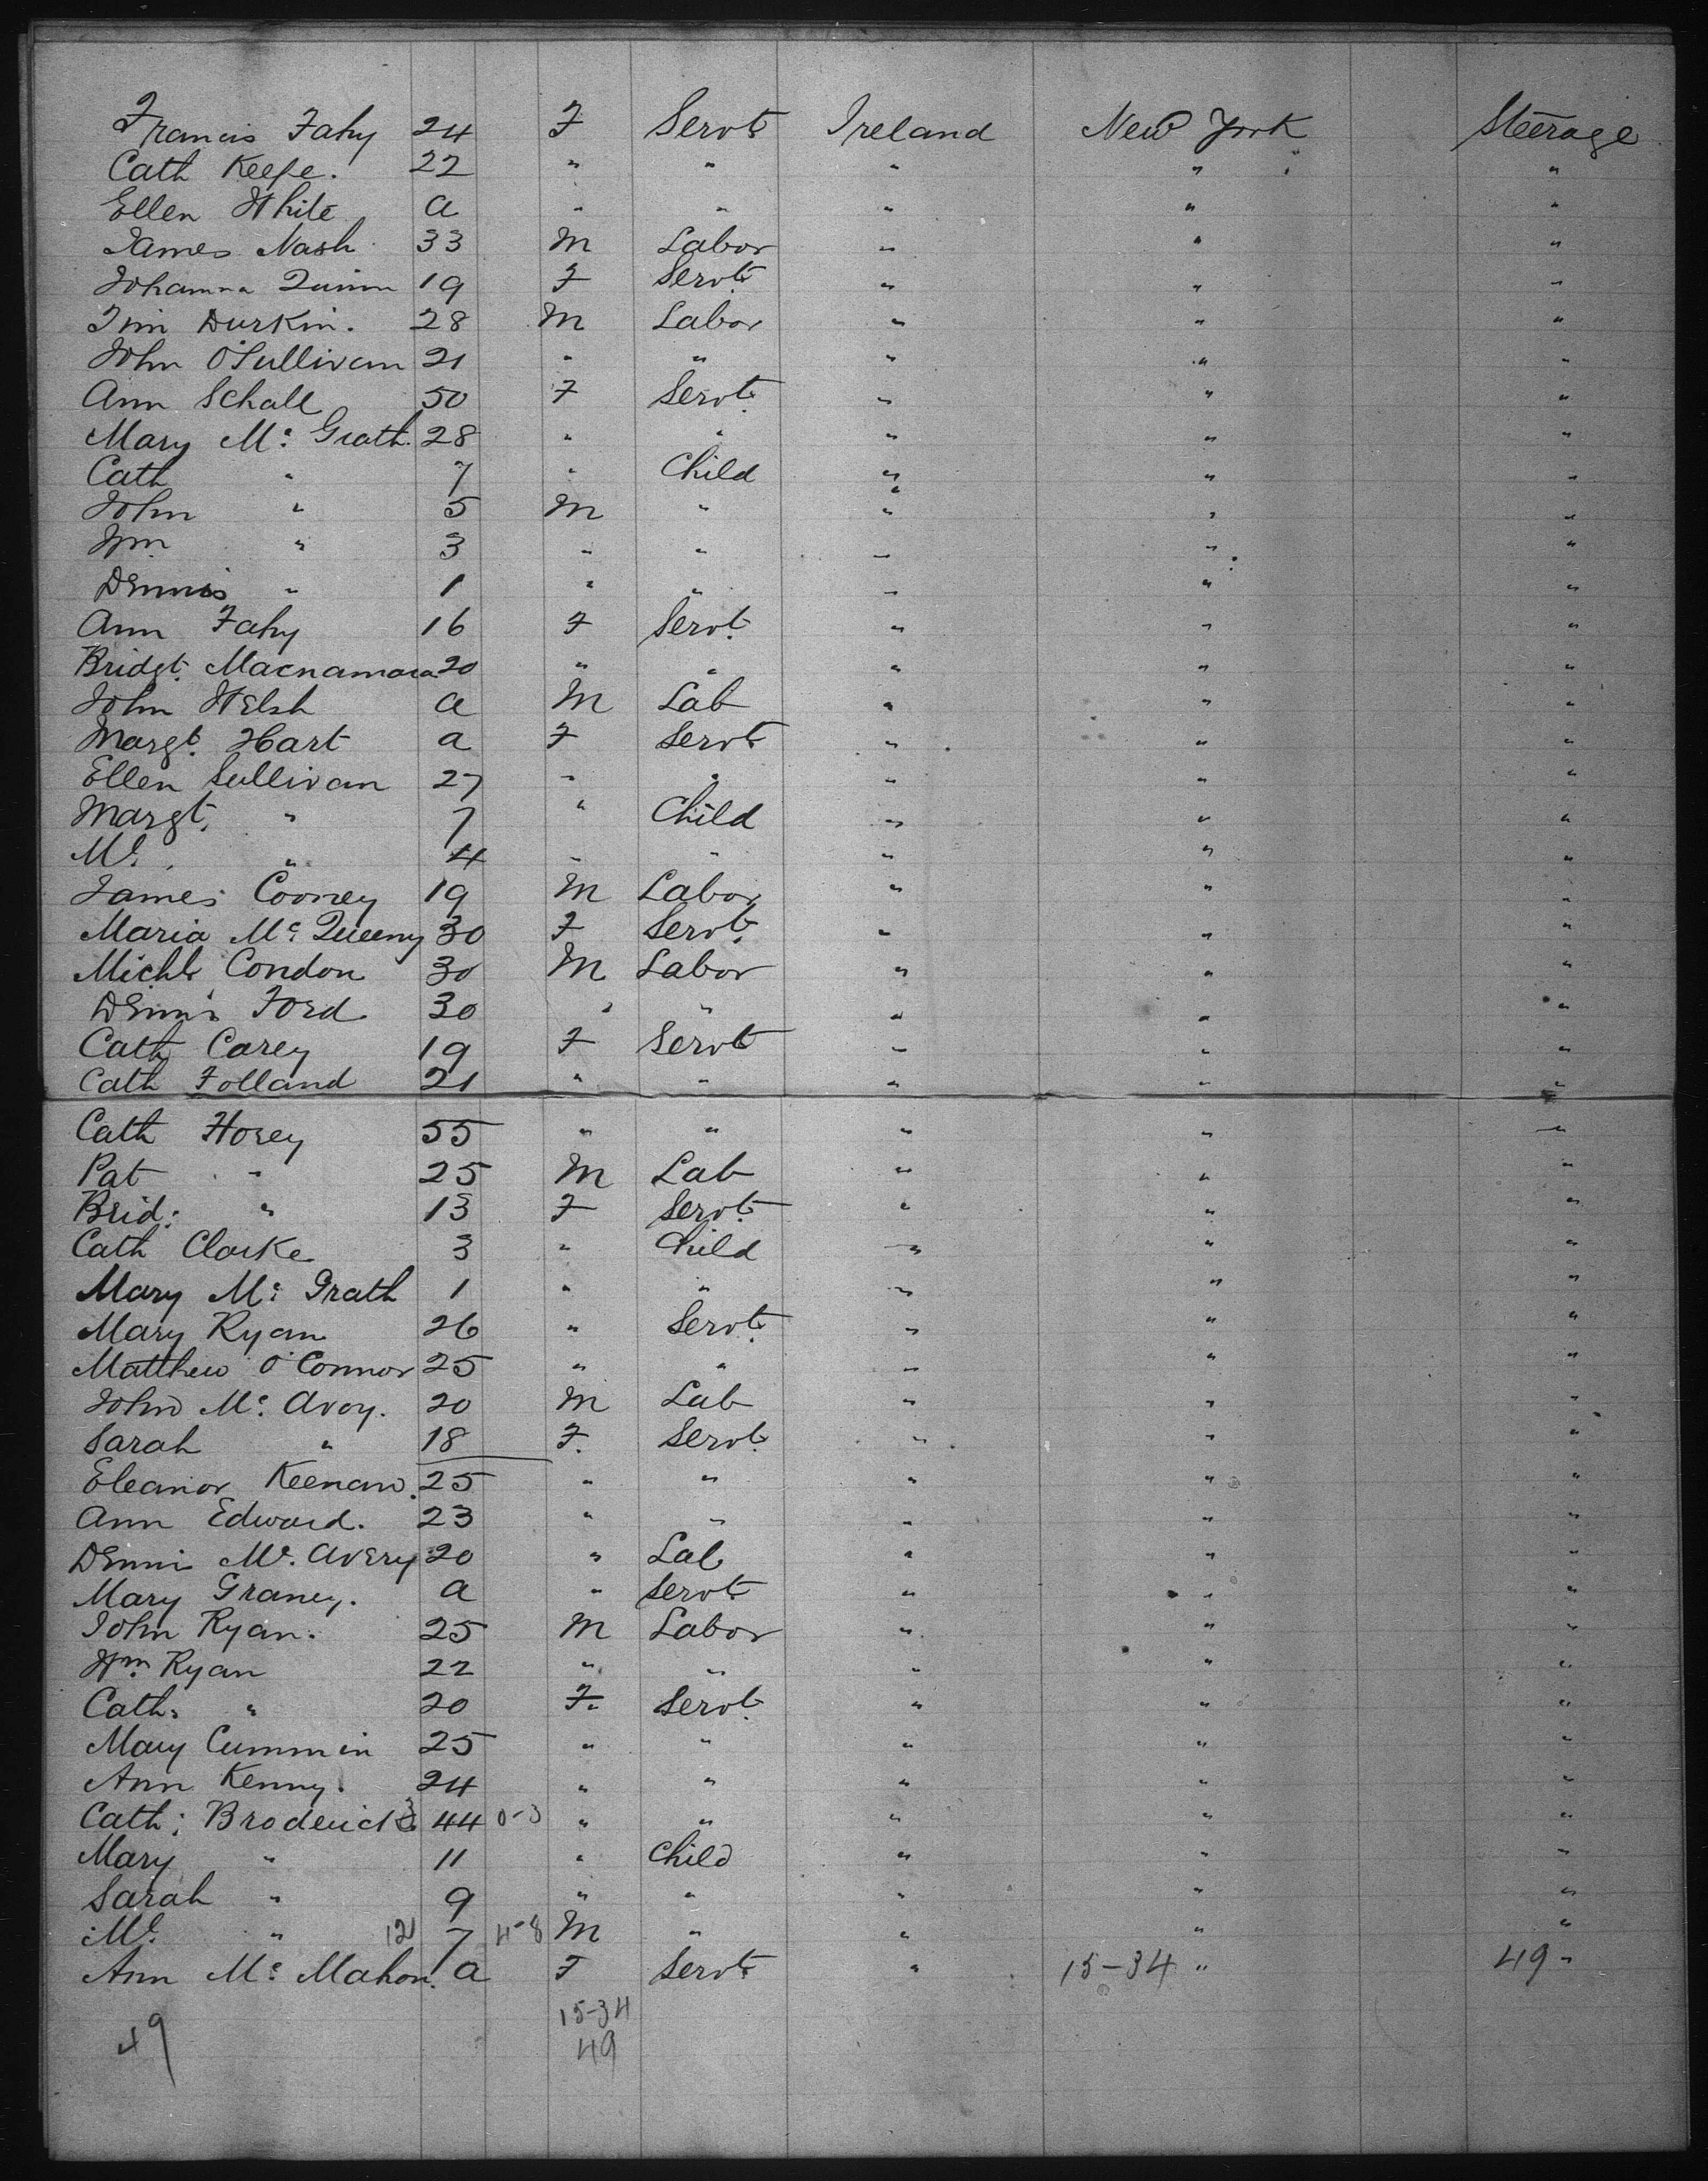 Francis Fahy 24 F Servt Ireland New York Steerage
Cath Keefe. 22 " " " " " "
Ellen White a " " " " "
James Nash 33 M Labor " " "
Johanna Quinn 19 F Servt " " "
Tim Durkin. 28 M Labor " " "
John O'Sullivan 21 " " " " "
Ann Schall 50 F Servt. " " "
Mary Mc Grath. 28 " " " " "
Cath " 7 " Child " " "
John " 5 M " " " "
Wm " 3 " " " " "
Dennis " 1 " " " " "
Ann Fahy 16 F Servt. " " "
Bridgt. Macnamara 20 " " " " "
John Welsh a M Lab " " "
Margt. Hart a F Servt " " "
Ellen Sullivan 27 " " " " "
Margt. " 7 " Child " " "
Ml. " 4 " " " " "
James Cooney 19 M Labor " " "
Maria Mc Queeny 30 F Servt. " " "
Michl Condon 30 M Labor " " "
Dennis Ford 30 " " " " "
Cath Carey 19 F Servt " " "
Cath Folland 21 " " " " "
Cath Horey 55 " " " " "
Pat " 25 M Lab " " "
Brid: " 13 F Servt. " " "
Cath Clarke 3 " Child " " "
Mary Mc Grath 1 " " " " "
Mary Ryan 26 " Servt. " " "
Matthew O'Connor 25 " " " " "
John Mc. Avoy. 20 M Lab " " "
Sarah " 18 F. Servt. " " "
Eleanor Keenan. 25 " " " " "
Ann Edward. 23 " " " " "
Dennis Mc. Avery 20 " Lab " " "
Mary Graney. a " Servt " " "
John Ryan. 25 M Labor " " "
Wm Ryan 22 " " " " "
Cath: " 20 F. Servt. " " "
Mary Cummin 25 " " " " "
Ann Kenny. 24 " " " " "
Cath: Broderick 3 44 0-3 " " " " "
Mary " 11 " Child " " "
Sarah " 9 " " " " "
Ml. " 12 7 4-8 M " " " "
Ann Mc Mahon. a F Servt " 15-34 " 49 "
15-34
49 49